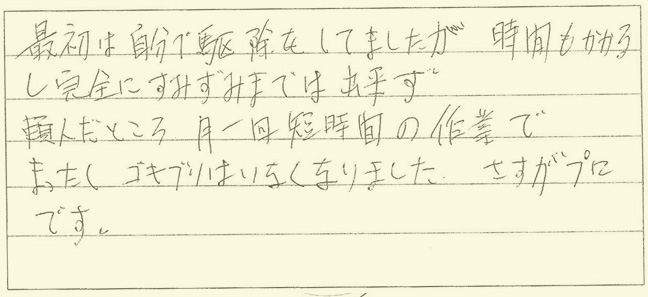 最初は自分で駆除をしてましたが 時間もかかる
し完全にすみずみまでは出来ず
頼んだところ 月一回短時間の作業で
まったく ゴキブリはいなくなりました さすがプロ
です。